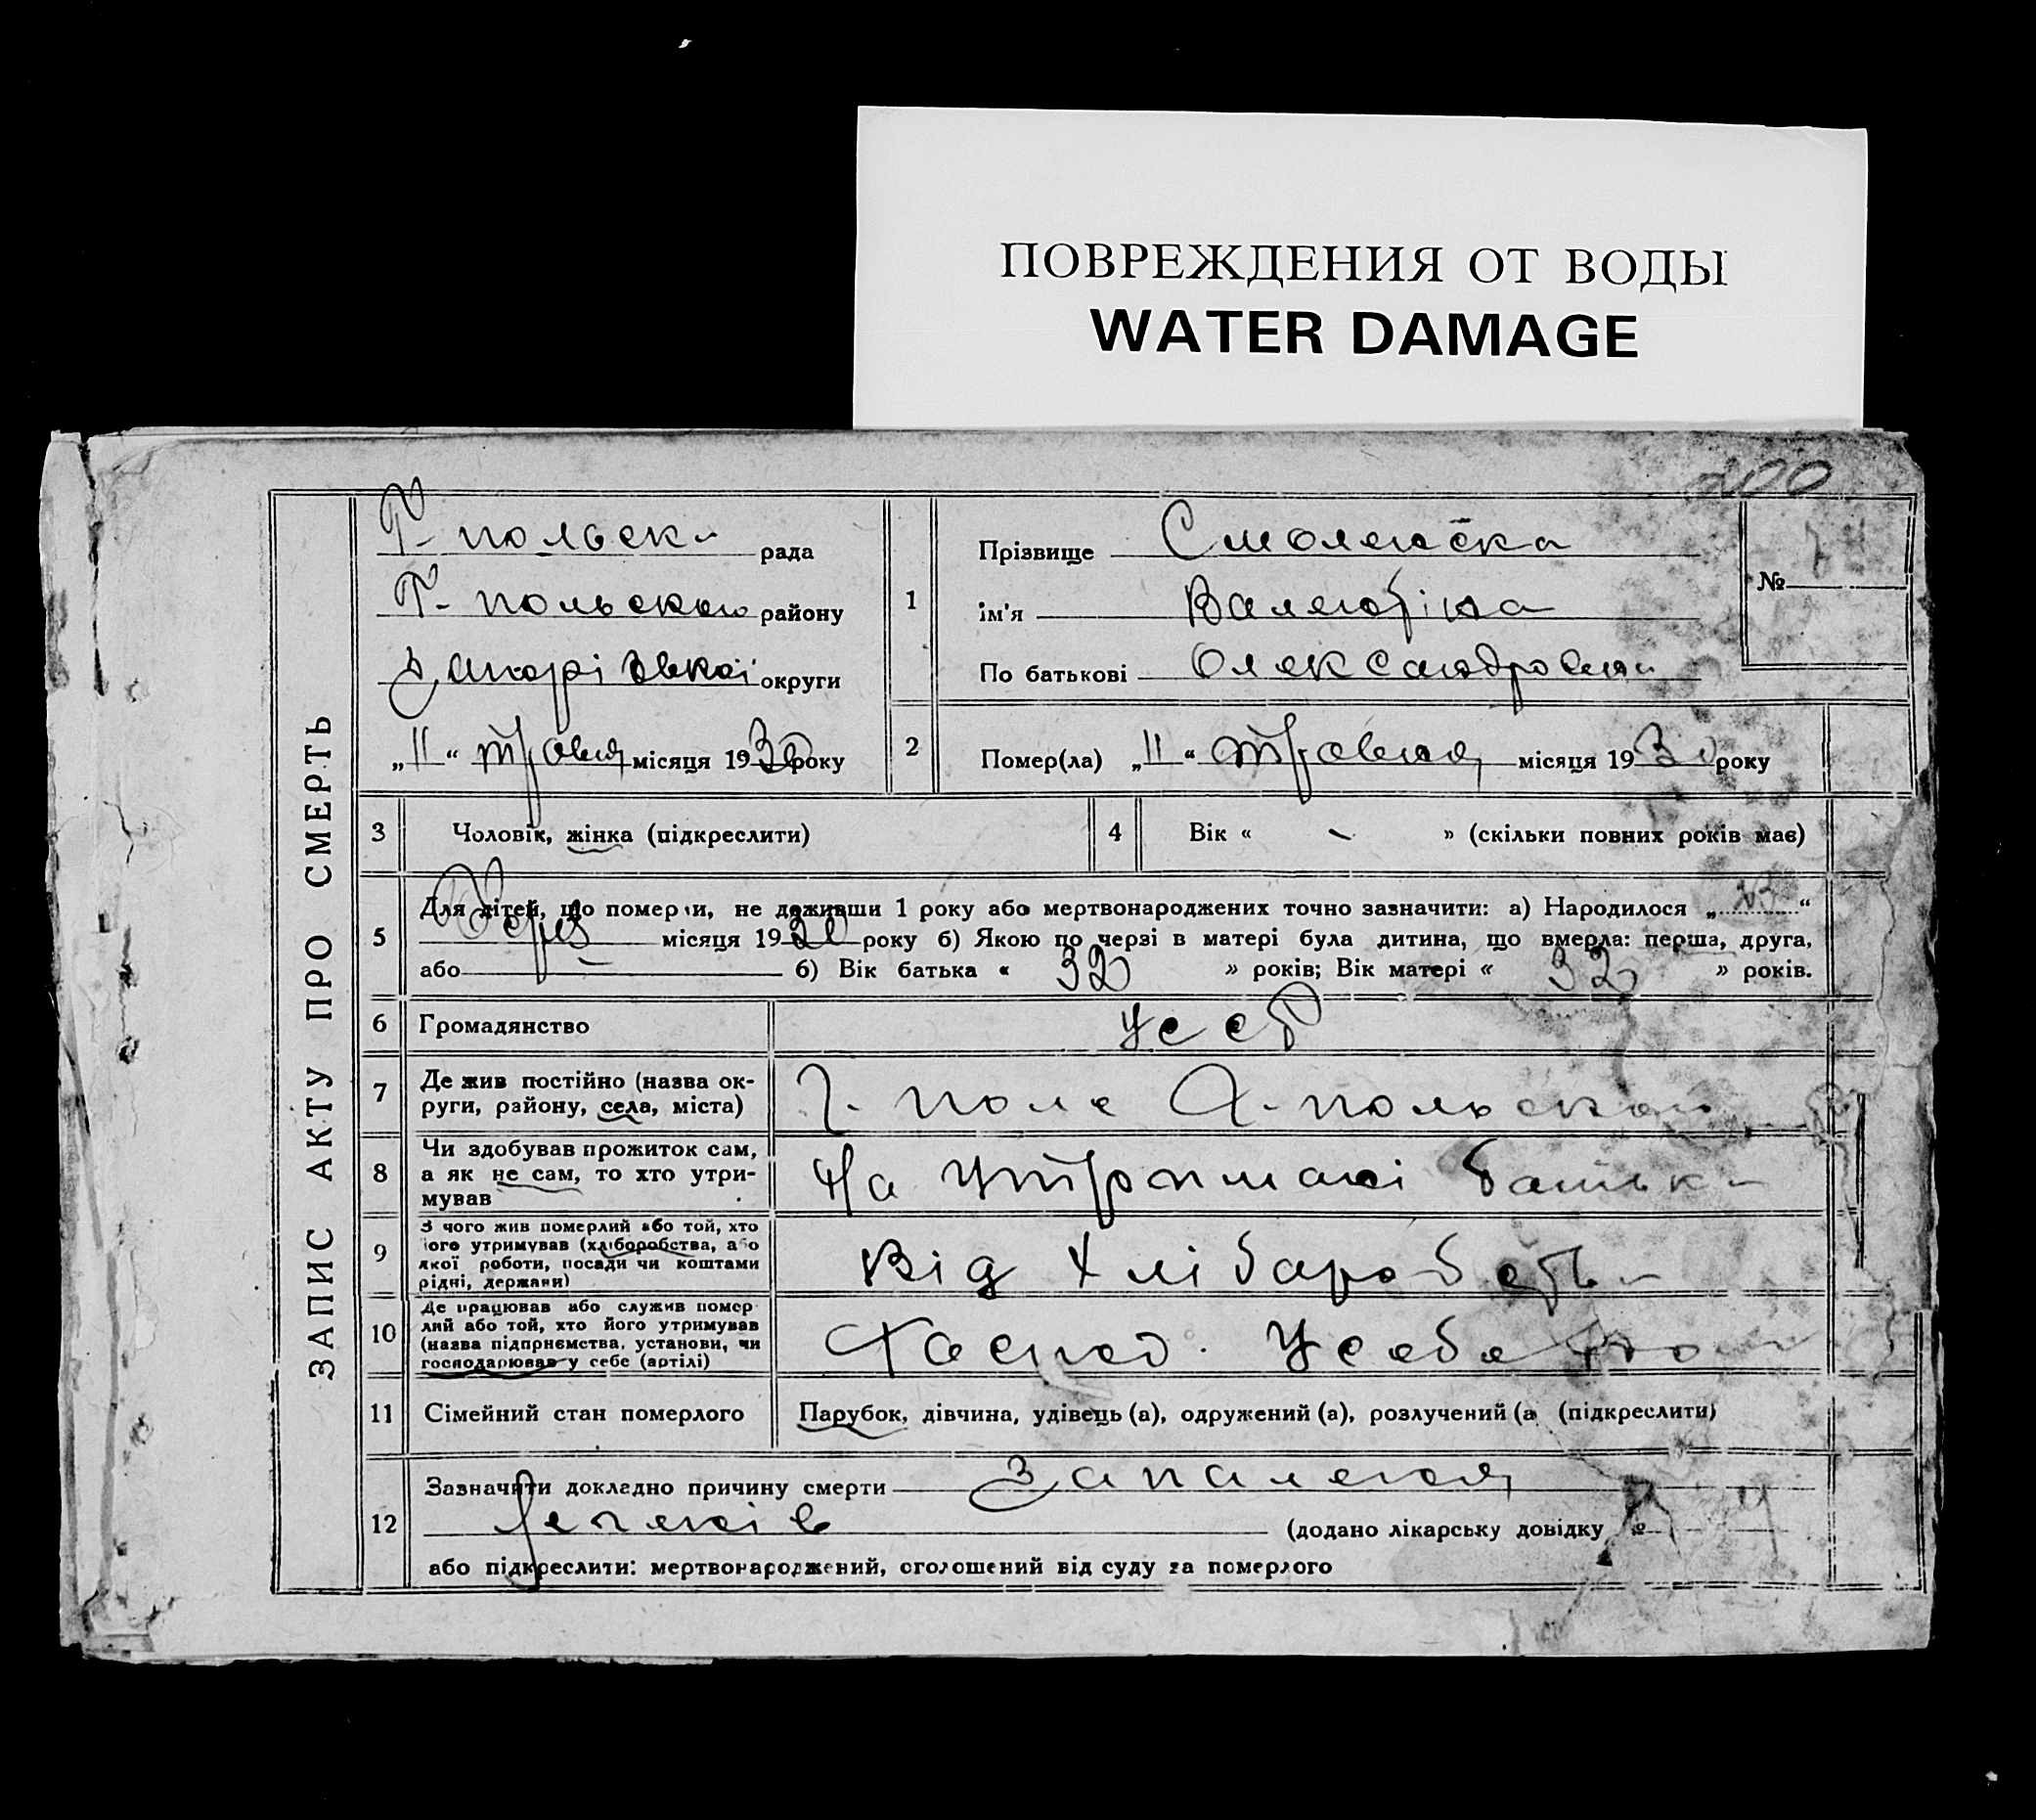 ПОВРЕЖДЕНИЯ ОТ ВОДЫ
WATER DAMAGE
200
ЗАПИС АКТУ ПРО СМЕРТЬ
Г-польск рада
Г-польского району
Запорізької округи
„11“ травня місяця 1930 року
1
Прізвище Смоленська
ім'я Валентіна
По батькові Олександровна
№
2 Помер(ла) „11“ травня місяця 1930 року
3 Чоловік, жінка (підкреслити)
4 Вік « - » (скільки повних років має)
5 Для дітей, що померли, не доживши 1 року або мертвонароджених точно зазначити: а) Народилося „ “
місяця 1930 року б) Якою по черзі в матері була дитина, що вмерла: перша, друга,
або б) Вік батька « 32 » років; Вік матері « 32 » років.
6 Громадянство УССР
7 Де жив постійно (назва ок-
руги, району, села, міста) Г. поле Г-польского
8 Чи здобував прожиток сам,
а як не сам, то хто утри-
мував На утриманні батьк
9 З чого жив померлий або той, хто
його утримував (хліборобства, або
якої роботи, посади чи коштами
рідні, держави) Від хліборобства
10 Де працював або служив помер
лий або той, хто його утримував
(назва підприємства, установи, чи
господарював у себе (артілі) Господ. У себе
11 Сімейний стан померлого Парубок, дівчина, удівець (а), одружений (а), розлучений (а (підкреслити)
12 Зазначити докладно причину смерти Запалення
легенів (додано лікарську довідку №
або підкреслити: мертвонароджений, оголошений від суду за померлого